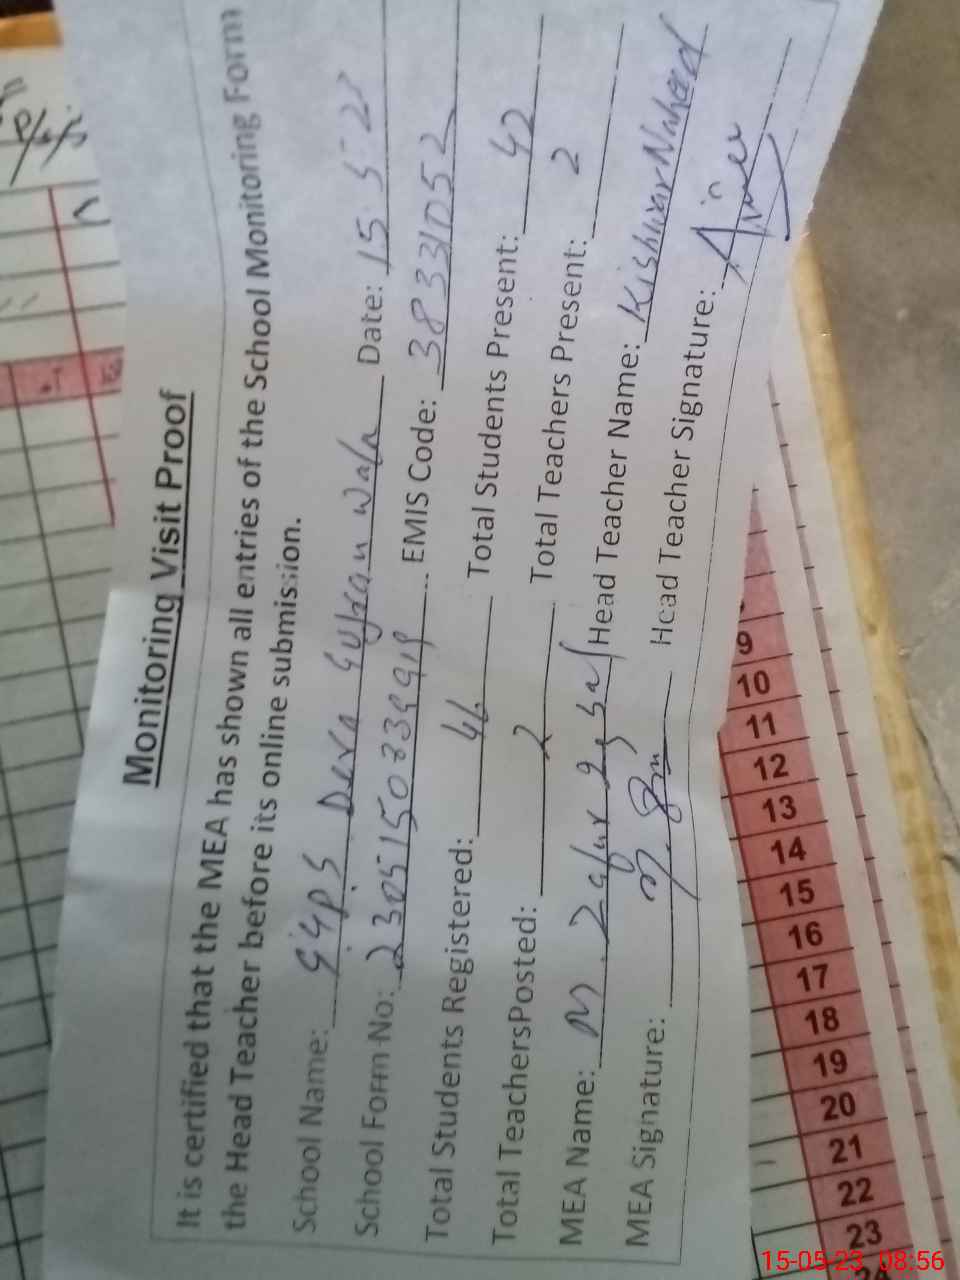 Monitoring Visit Proof
It is certified that the MEA has shown all entries of the School Monitoring Form
the Head Teacher before its online submission.
School Name: GGPS Dera Gujran wala Date: 15.5.23
School Form No: EMIS Code: 38331052
Total Students Registered: 46 Total Students Present: 42
Total TeachersPosted: 2 Total Teachers Present: 2
MEA Name: M. Zafur Head Teacher Name: Kishwar Naheed
MEA Signature: Head Teacher Signature:
9
10
11
12
13
14
15
16
17
18
19
20
21
22
23
15-05-23 08:56